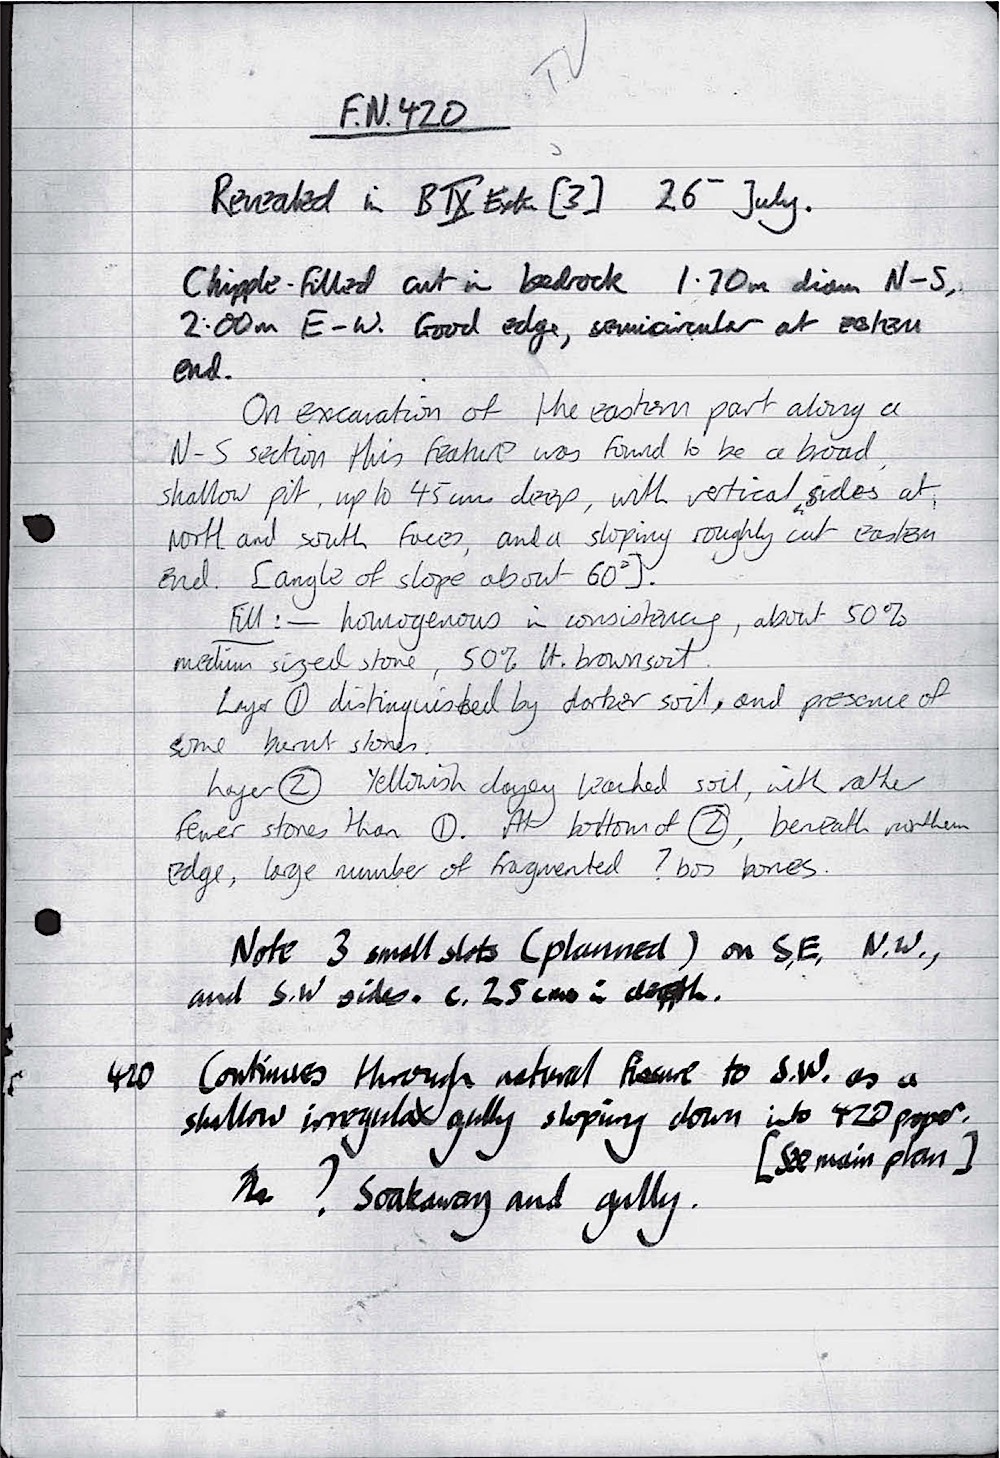 F.N. 420
Revealed in B IX Extn [3] 26 July.
Chipple-filled cut in bedrock 1.70m diam N-S,
2.00m E-W. Good edge, semicircular at eastern
end.
On excavation of the eastern part along a
N-S section this feature was found to be a broad
shallow pit, up to 45 cms deep, with vertical sides at
north and south faces, and a sloping roughly cut eastern
end. [angle of slope about 60°].
Fill :— homogenous in consistency, about 50%
medium sized stone, 50% lt. brown soil.
Layer ① distinguished by darker soil, and presence of
some burnt stones.
Layer ② Yellowish clayey leached soil, with rather
fewer stones than ①. At bottom of ②, beneath northern
edge, large number of fragmented ? bos bones.
Note 3 small slots (planned) on S.E, N.W.,
and S.W sides. c. 25 cms in depth.
420 Continues through natural fissure to S.W. as a
shallow irregular gully sloping down into 420 proper.
[See main plan]
? Soakaway and gully.